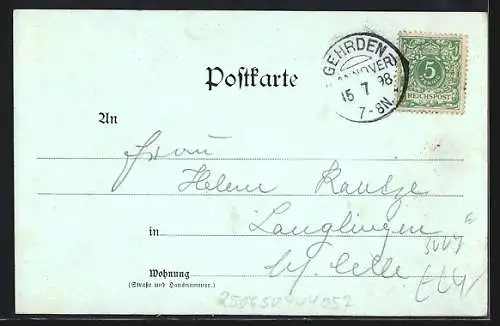 GEHRDEN
(HANNOVER)
15 7 98
7-8N.
5
REICHSPOST
Postkarte
An
Frau
Helene Rautze
in Langlingen
bj. Celle
Wohnung
(Straße und Hausnummer.)